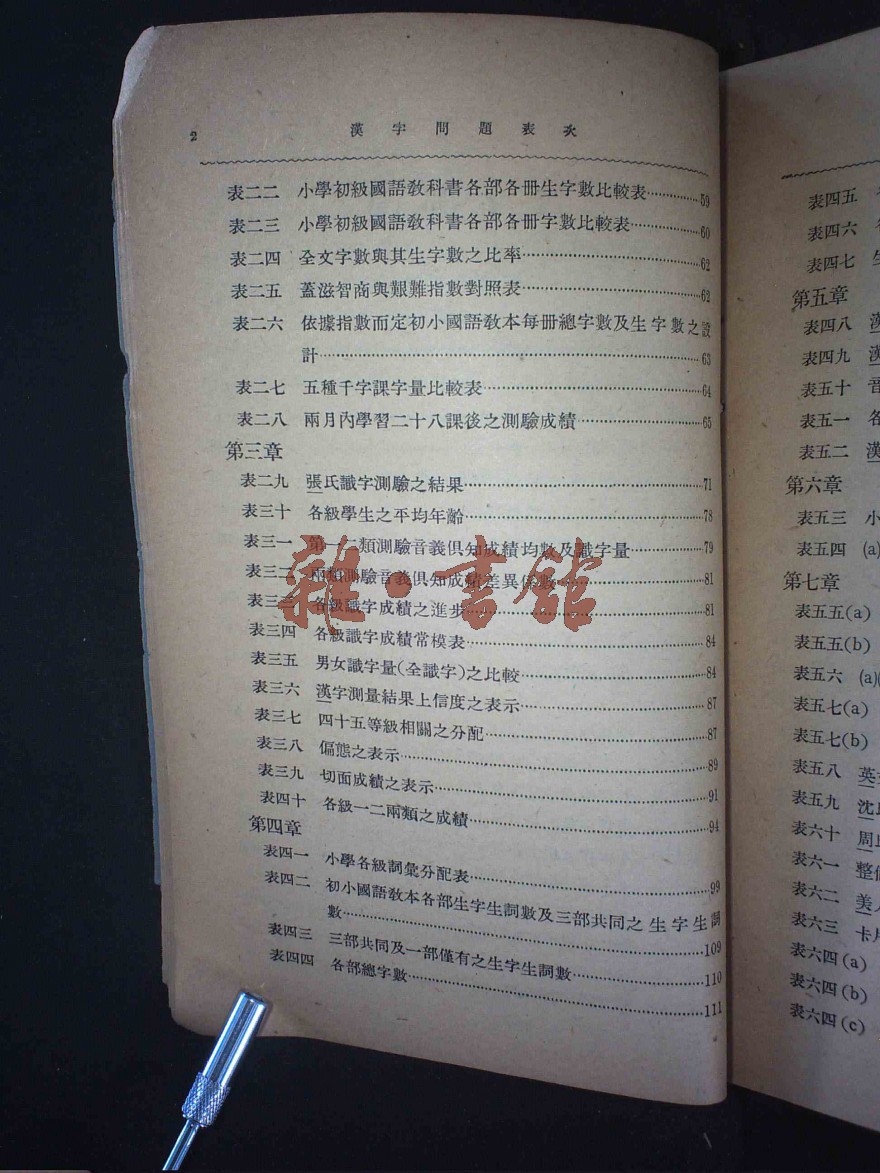 2
漢字問題表次
表二二 小學初級國語教科書各部各册生字數比較表……59
表二三 小學初級國語教科書各部各册字數比較表……60
表二四 全文字數與其生字數之比率……62
表二五 蓋滋智商與艱難指數對照表……62
表二六 依據指數而定初小國語教本每册總字數及生字數之設
計……63
表二七 五種千字課字量比較表……64
表二八 兩月內學習二十八課後之測驗成績……65
第三章
表二九 張氏識字測驗之結果……71
表三十 各級學生之平均年齡……78
表三一 第一二類測驗音義俱知成績均數及識字量……79
表三二 兩類測驗音義俱知成績差異係數……81
表三三 各級識字成績之進步……81
表三四 各級識字成績常模表……84
表三五 男女識字量(全識字)之比較……84
表三六 漢字測量結果上信度之表示……87
表三七 四十五等級相關之分配……87
表三八 偏態之表示……89
表三九 切面成績之表示……91
表四十 各級一二兩類之成績……94
第四章
表四一 小學各級詞彙分配表……99
表四二 初小國語教本各部生字生詞數及三部共同之生字生詞
數……109
表四三 三部共同及一部僅有之生字生詞數……110
表四四 各部總字數……111
雜·書館
表四五
表四六
表四七
第五章
表四八 漢
表四九 漢
表五十 音
表五一 各
表五二 漢
第六章
表五三 小
表五四 (a)
第七章
表五五(a)
表五五(b)
表五六 (a)
表五七(a)
表五七(b)
表五八 英
表五九 沈
表六十 周
表六一 整
表六二 美
表六三 卡片
表六四(a)
表六四(b)
表六四(c)